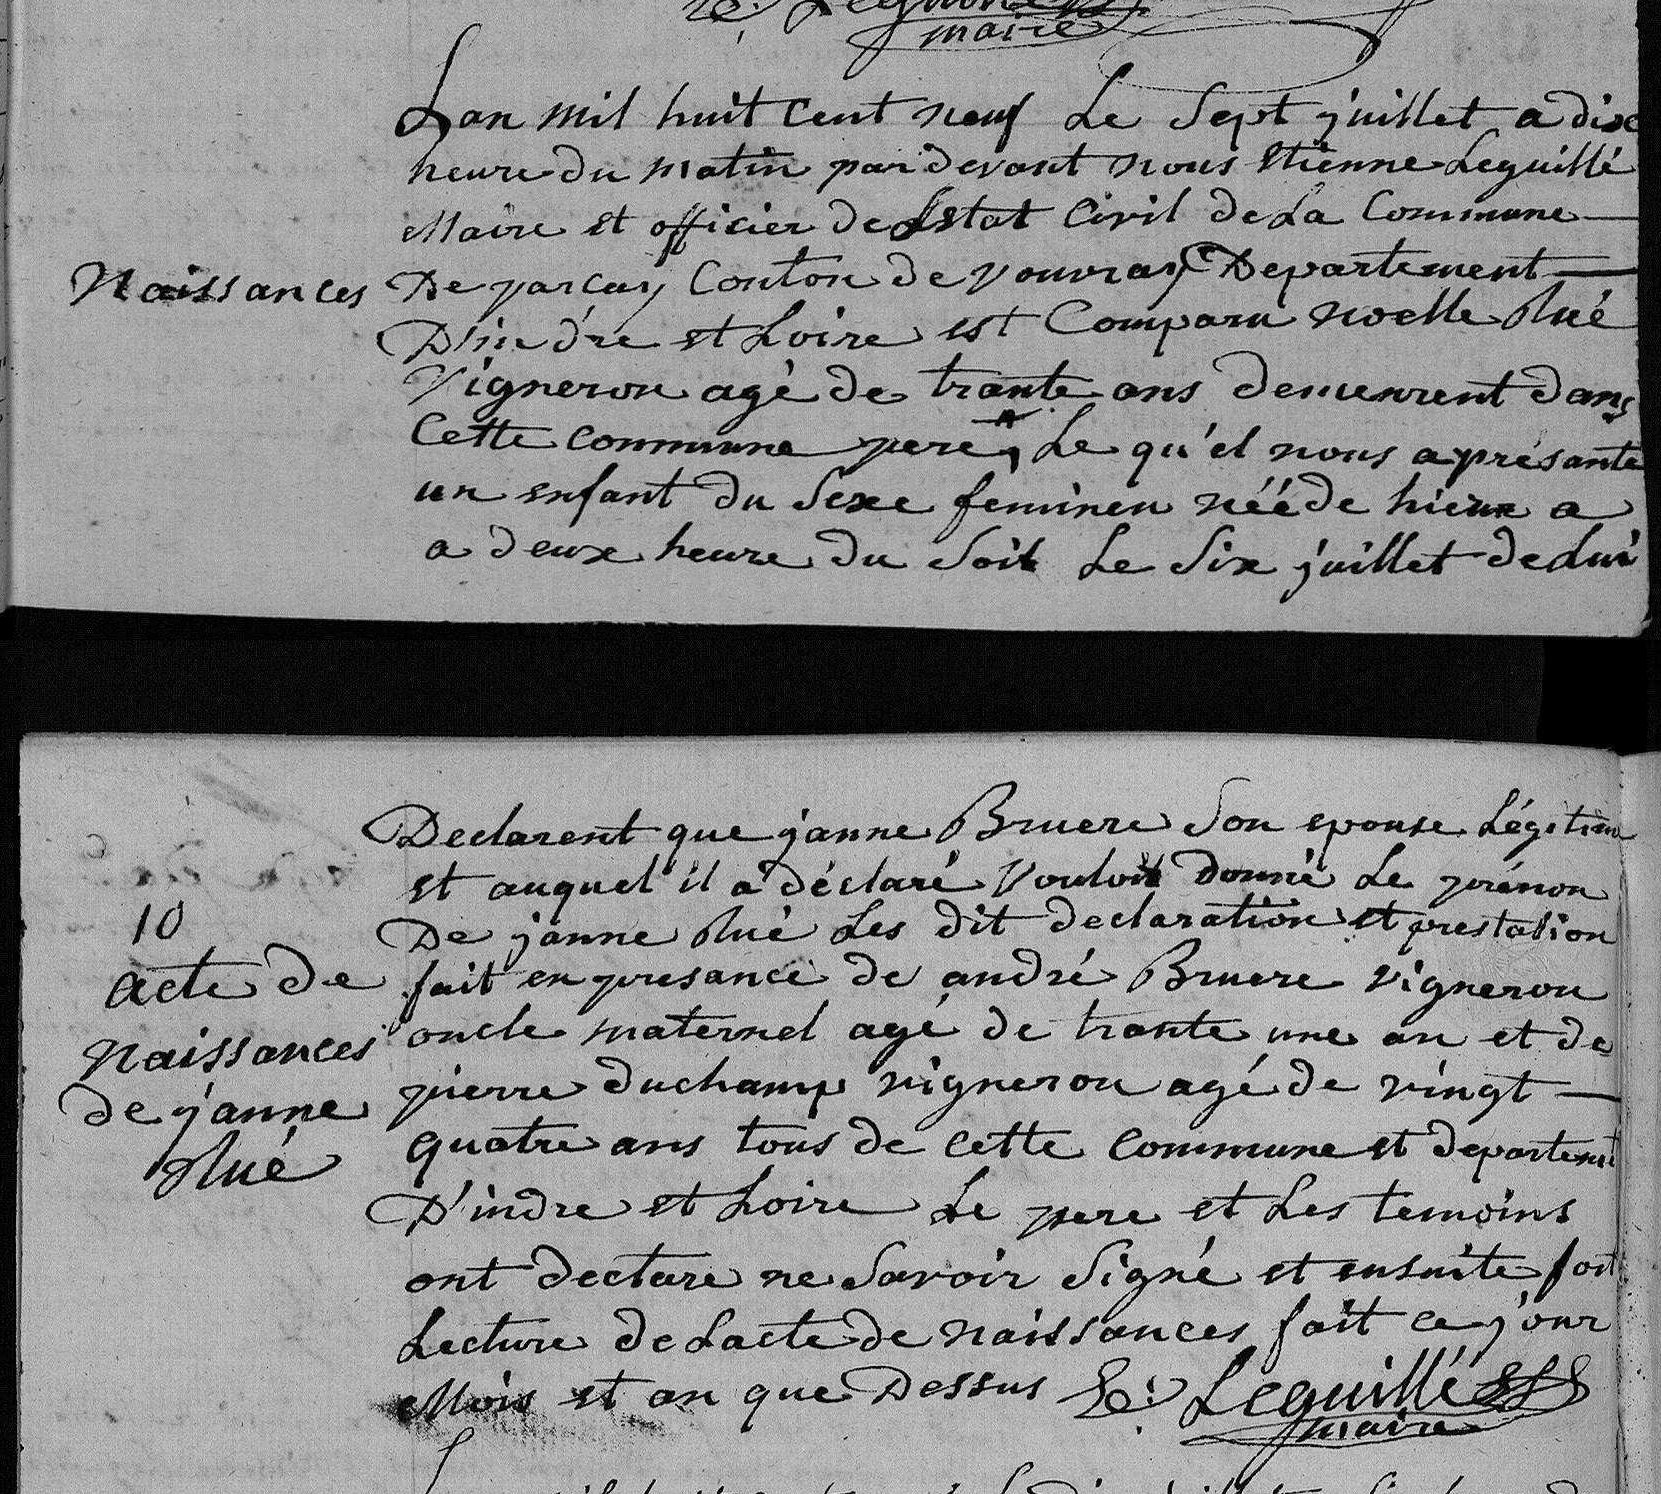 maire
Lan mil huit Cent neuf Le Sept juillet a dix
heure du matin pardevant nous Etienne Leguillé
Maire et officier de Létat Civil de La Commune
Naissances
De parcay Conton de vouvray Departement
D'indre et Loire est Comparu noelle Plué
Vigneron agé de trante ans demeurent dans
Cette commune pere Le qu'el nous aprésanté
un enfant du Sexe feminen néé de hier a
a deux heure du Soit Le Six juillet de Lui
Declarent que janne Bruere Son epouse Légitim
et auquel il a déclaré Vouloit donné Le prénon
De janne Plué Les dit declaration et prestation
fait en presance de andré Bruere vigneron
oncle maternel agé de trante une an et de
pierre duchamp vigneron agé de vingt
quatre ans tous de cette commune et departement
D'indre et Loire Le pere et Les temoins
ont declare ne Savoir Signé et ensuite fait
Lecture de Lacte de naissances fait ce jour
Mois et an que Dessus Le: Leguillé
maire
10
acte de
Naissances
de janne
Plué